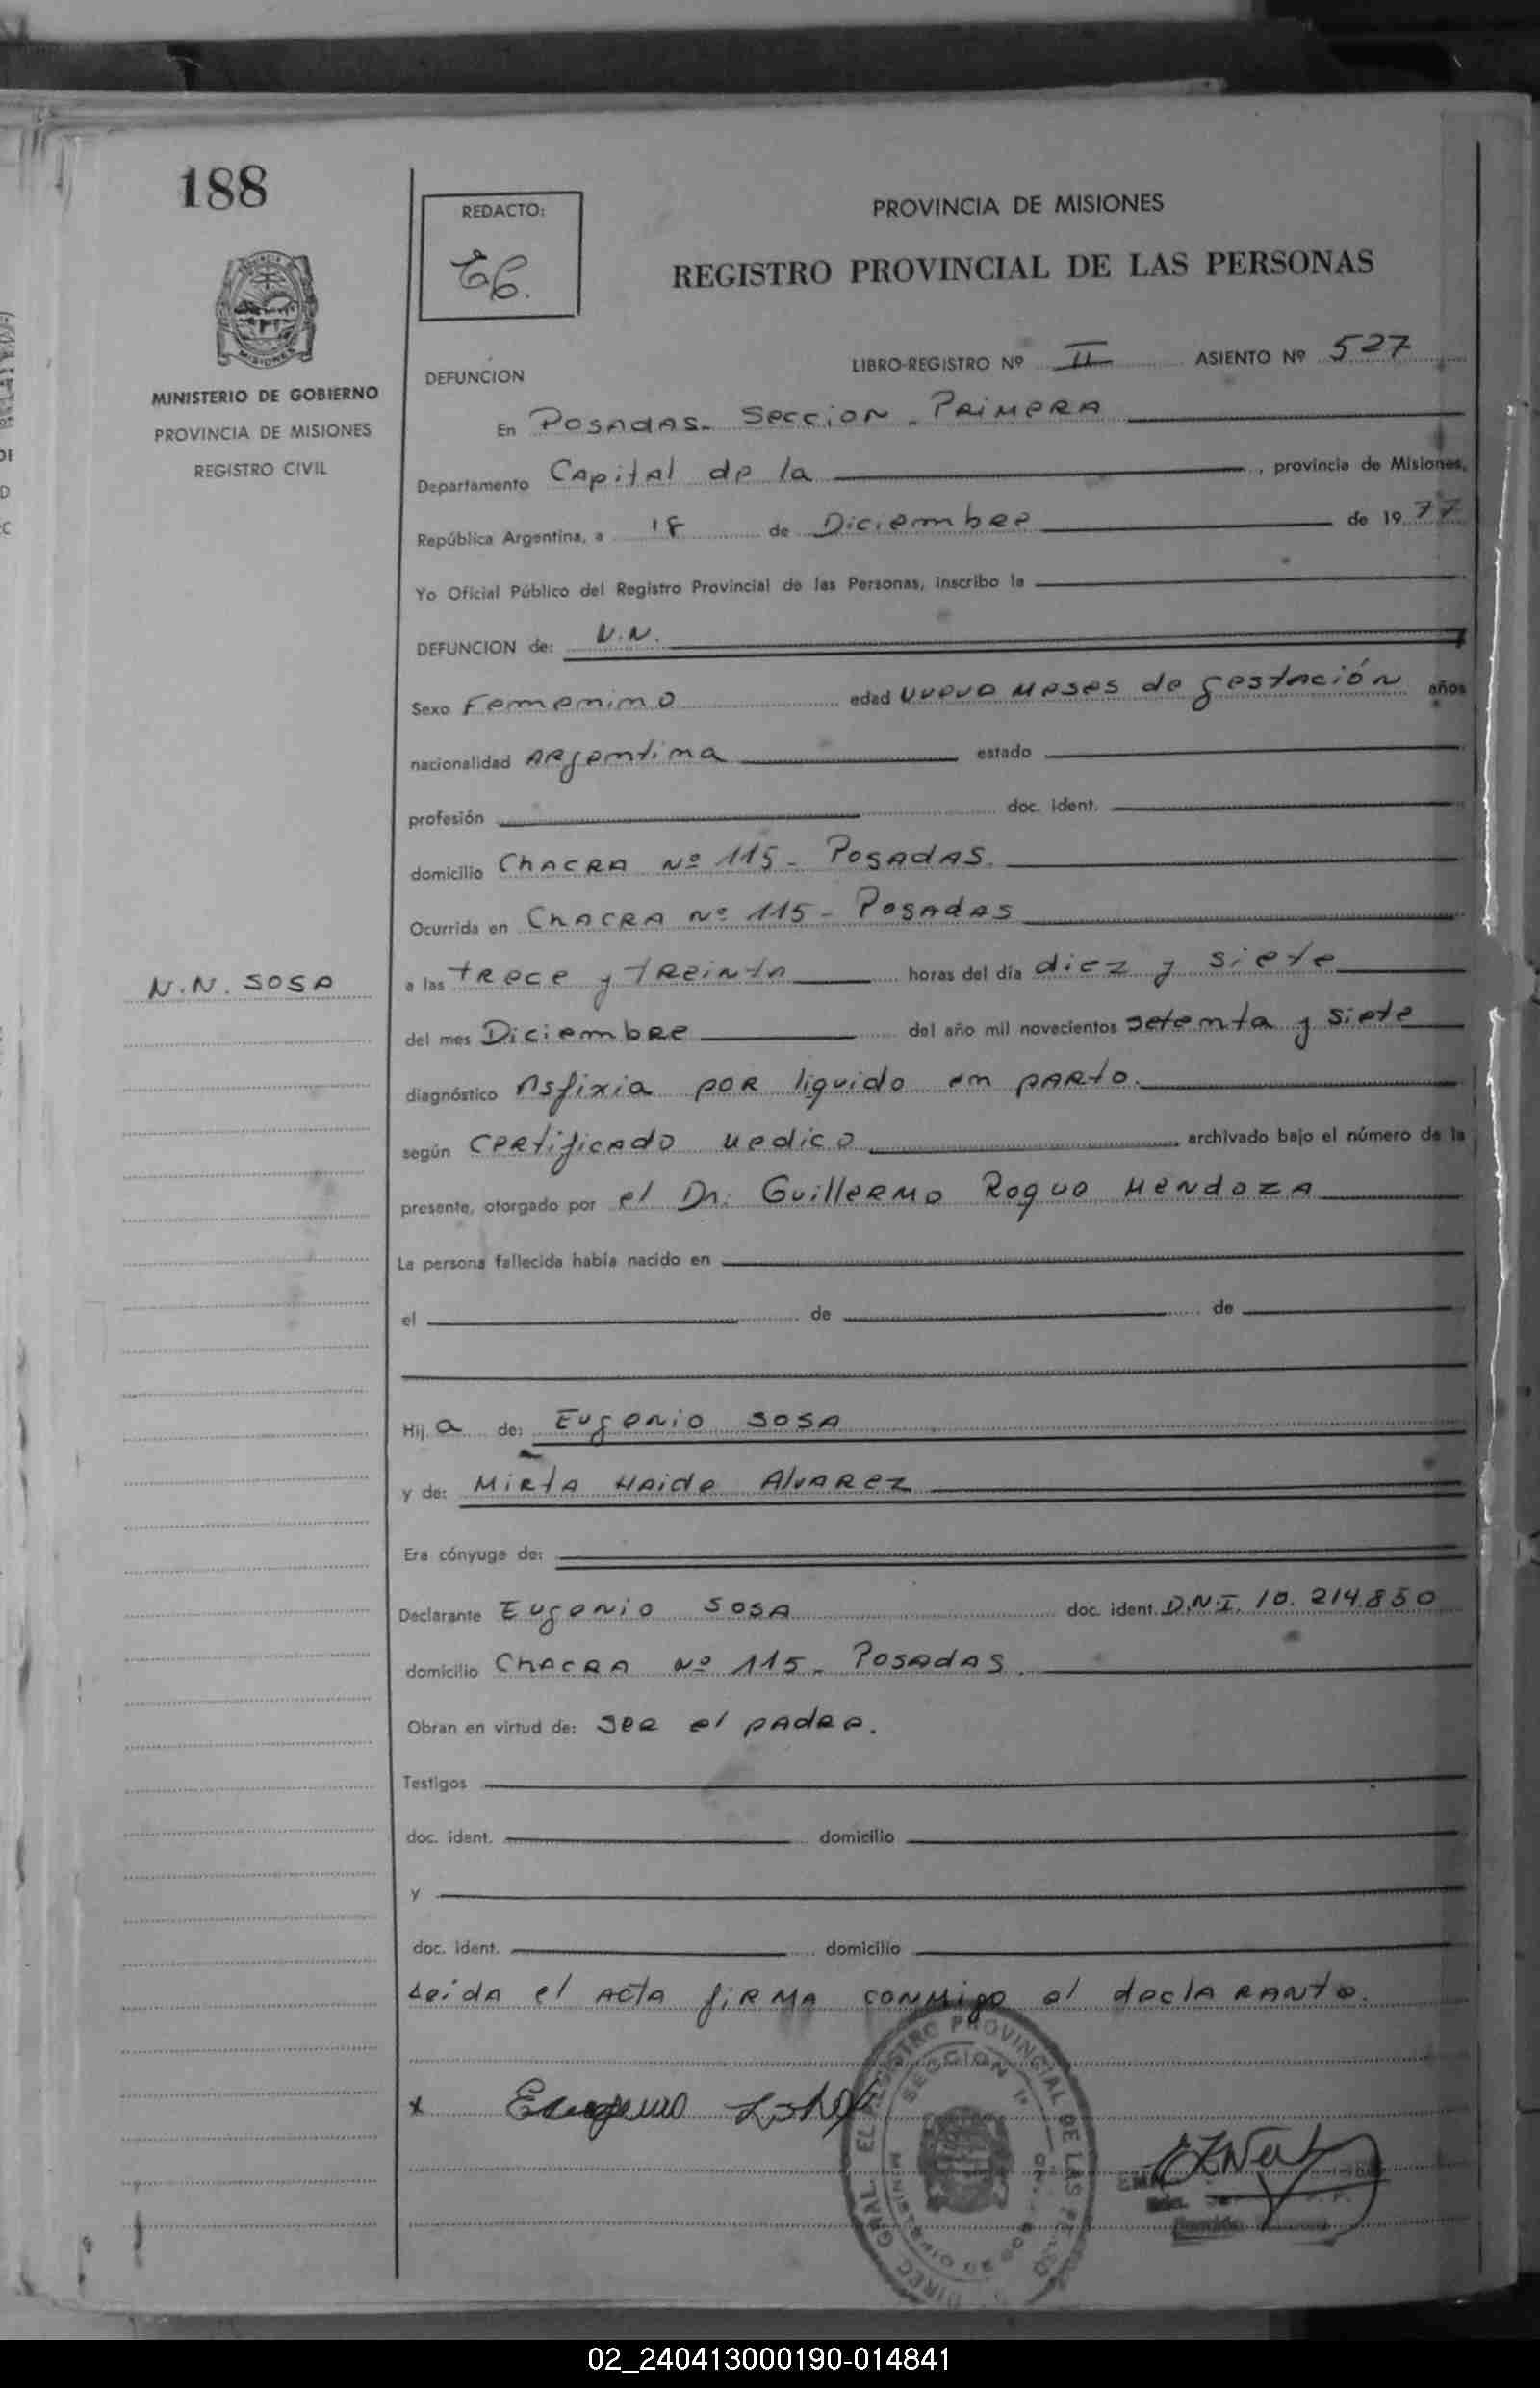 188
REDACTO:
PROVINCIA DE MISIONES
REGISTRO PROVINCIAL DE LAS PERSONAS
MINISTERIO DE GOBIERNO
PROVINCIA DE MISIONES
REGISTRO CIVIL
LIBRO-REGISTRO Nº II ASIENTO Nº 527
DEFUNCION
En Posadas. Seccion. Primera
Departamento Capital de la , provincia de Misiones,
República Argentina, a 18 de Diciembre de 1977
Yo Oficial Público del Registro Provincial de las Personas, inscribo la
DEFUNCION de: N.N.
Sexo Femenino edad nueve meses de gestación años
nacionalidad Argentina estado
profesión doc. ident.
domicilio Chacra Nº 115 - Posadas.
Ocurrida en Chacra Nº 115 - Posadas
N.N. SOSA
a las trece y treinta horas del día diez y siete
del mes Diciembre del año mil novecientos setenta y siete
diagnóstico Asfixia por liquido en parto.
según Certificado medico archivado bajo el número de la
presente, otorgado por el Dr. Guillermo Roque Mendoza
La persona fallecida había nacido en
el de de
Hija de: Eugenio SOSA
y de: Mirta Haide Alvarez
Era cónyuge de:
Declarante Eugenio SOSA doc. ident. D.N.I. 10.214.850
domicilio Chacra Nº 115 - Posadas.
Obran en virtud de: ser el padre.
Testigos
doc. ident. domicilio
y
doc. ident. domicilio
Leida el acta firma conmigo el declarante.
x Eugenio Sosa
DIREC. GRAL. EL REGISTRO PROVINCIAL DE LAS
SECCION 1ª
02_240413000190-014841